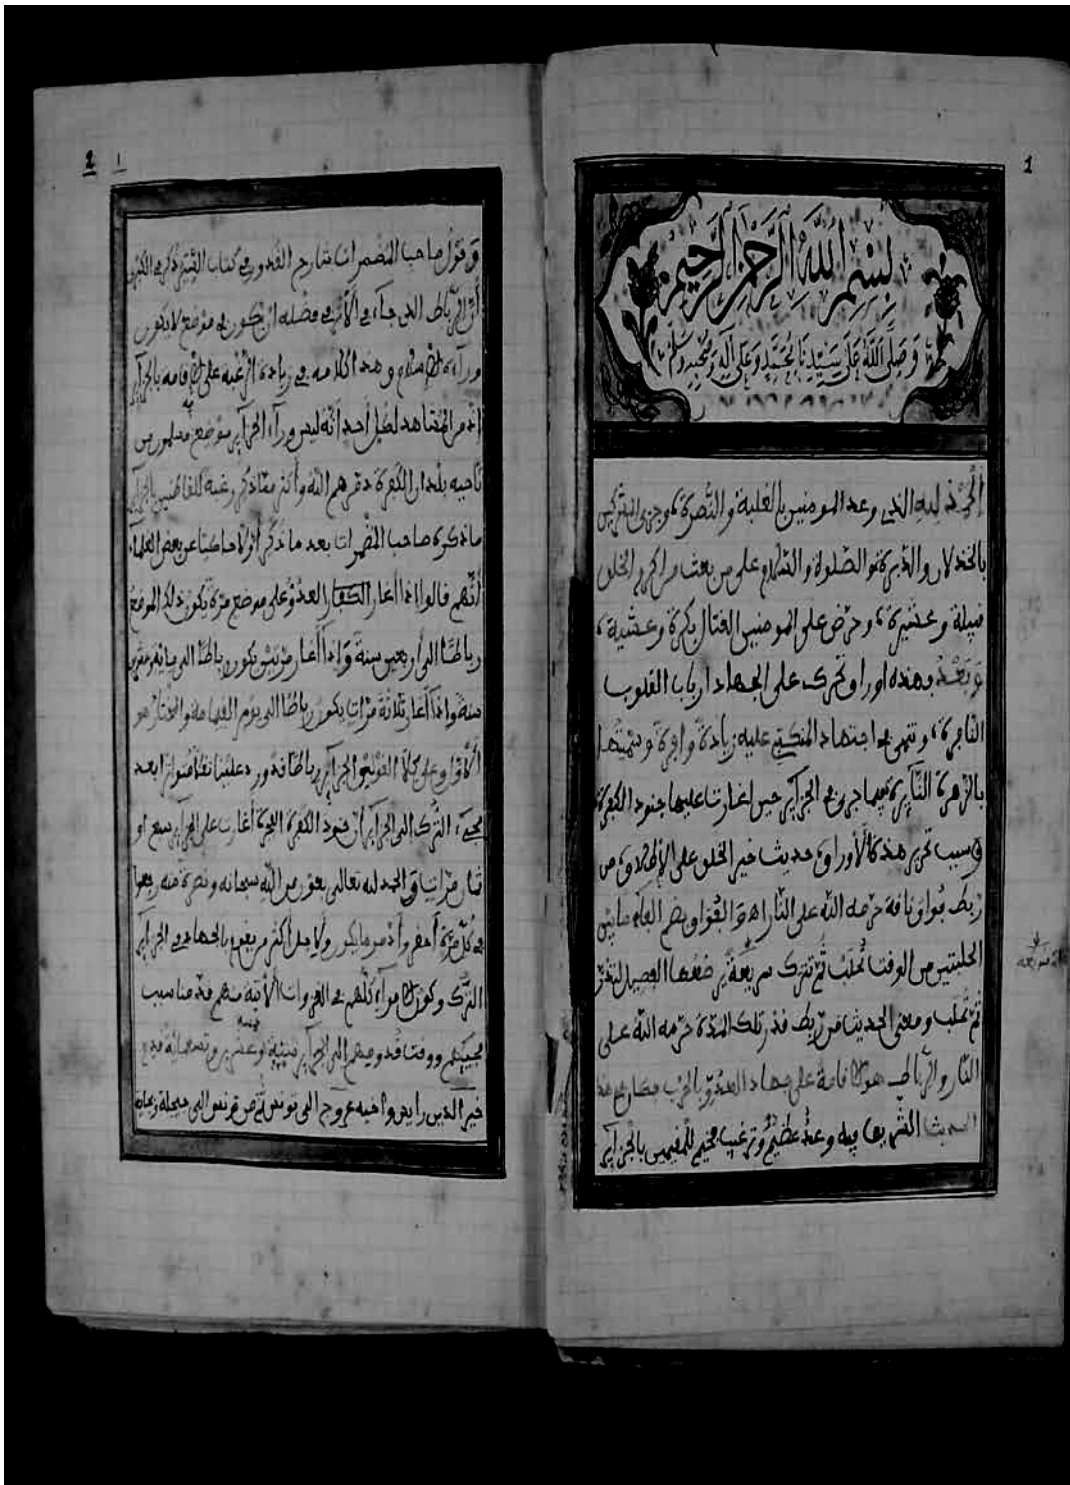 1
بِسْمِ اللَّهِ الرَّحْمَنِ الرَّحِيمِ
وَصَلَّى اللَّهُ عَلَى سَيِّدِنَا مُحَمَّدٍ وَعَلَى آلِهِ وَصَحْبِهِ وَسَلَّمَ
الحمد لله الذي وعد المومنين بالغلبة والنُّصرة، وجزى المشركين
بالخذلان والدَّبرة، والصَّلوة والسَّلام على من بعث من اكرم الخلق
قبيلة وعشيرة، وحرّض على المومنين القتال بكرة وعشية،
وَبَعْدُ فهذه اوراق تحرك على الجهاد ارباب القلوب
النافرة، وتنمى في اجتهاد المنكب عليه زيادة وافرة وسميتها
بالزّهرة النَّآيرة فيما جرى في الجزآير حين اغارت عليها جنود الكفرة
وسبب تحرير هذه الأوراق حديث خير الخلق على الإطلاق من
رّبط فُواق ناقة حرّمه الله على النّار اهـ وَالفُوَاق بضم الفآء ما بين
الحلبتين من الوقت تُحلب ثمّ تترك سريعةً يرضعها الفصيل لتدرّ
ثمّ تُحلب ومعنى الحديث من رّبط قدر تلك المدّة حرّمه الله على
النّار والرّباط هو الاقامة على جهاد العدوّ بالحرب
الحديث الشّريف فيه وعدٌ عظيمٌ وترغيب فخيم للمقيمين بالجزآير
2 ١
وَقَوْلُ صاحب المُضْمرات شارح القُدوري في كتاب السِّيَر ذكر في الكبرى
أنّ الرّباط الذي جآء في الأثر في فضله ان يكون في موضع لا يكون
ورآءه الإسلام وهذا كلامه في زيادة الرّغبة على الإقامه بالجزآير
اذ من المُشاهد لكل أحد أنّه ليس ورآء الجزآير موضع مسلمون من
ناحيه بلدان الكفرة دمّرهم الله وأكثر ممّا ذكر رغبة للقاطنين بالجزآير
ما ذكره صاحب المُضمرات بعد ما ذكر أوّلا حاكيا عن بعض العلمآء
أنّهم قالوا اذا أغار الكفار العدوّ على موضع مرّة يكون ذلك الموضع
رباطًا الى أربعين سنةً وَاِذا أغار مرّتين يكون رباطًا الى مايةٍ وعشرين
سنةً واذا أغار ثلاثة مرّاتٍ يكون رباطًا الى يوم القيامة والمختار هو
الأوّل وعلى كلا القولين الجزآير رباطًا قد ورد علينا نقلًا متواترًا بعد
مجيء التّرك الى الجزآير أنّ جنود الكفرة الفجرة أغارت على الجزآير سبع او
ثمان مرّات والحمد لله تعالى بعون من الله سبحانه ونصرة منه رجعوا
في كُلّ مرّة أحقر وأذمّ ما يكون ولأجل أكثر من يقوم بالجهاد في الجزآير
التّرك وكون الامرآء كلّهم في الغزوات الأتية منهم قدّمنا سبب
مجيئهم ووقت قدومهم الى الجزآير ففي سنة وعشرين وتسعمائة قدم
خير الدين رايس واخيه عروج الى تونس ثمّ من تونس الى جيجلة